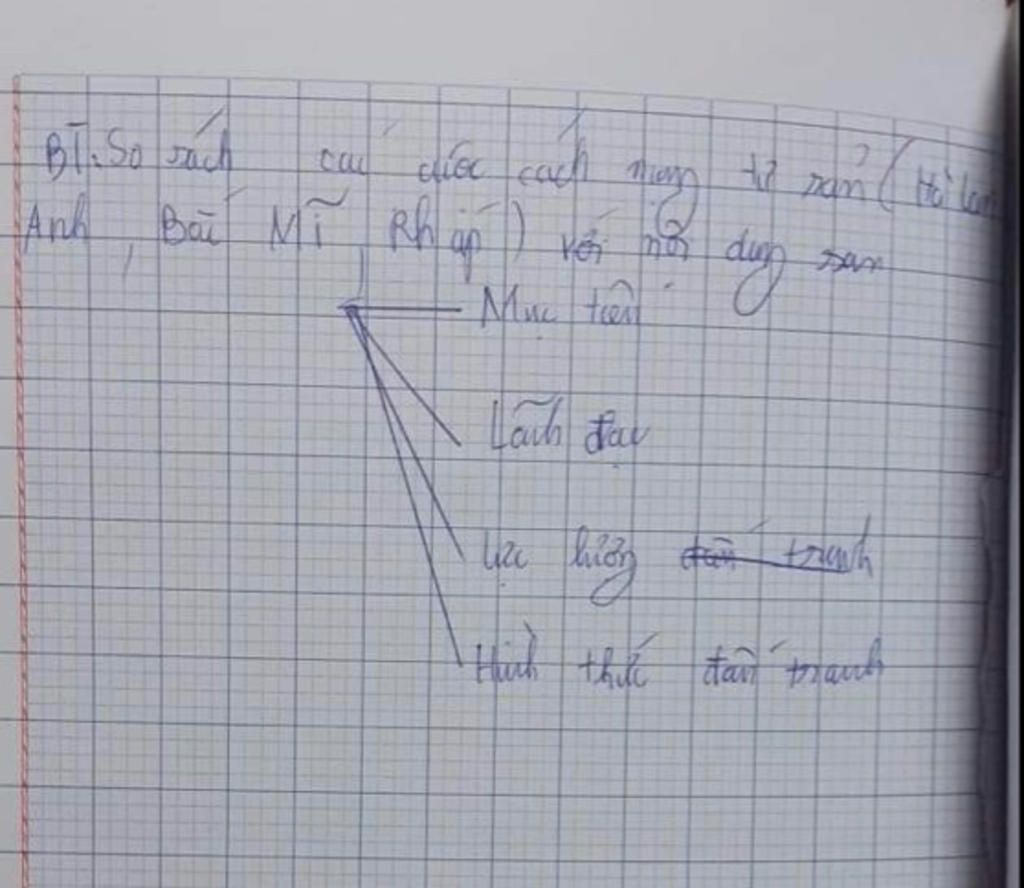 BT. So sách các cuộc cách mạng tư sản (Hà Lan
Anh, Bắc Mĩ, Pháp) với nội dung sau
Mục tiêu
Lãnh đạo
Lực lượng đấu tranh
Hình thức đấu tranh